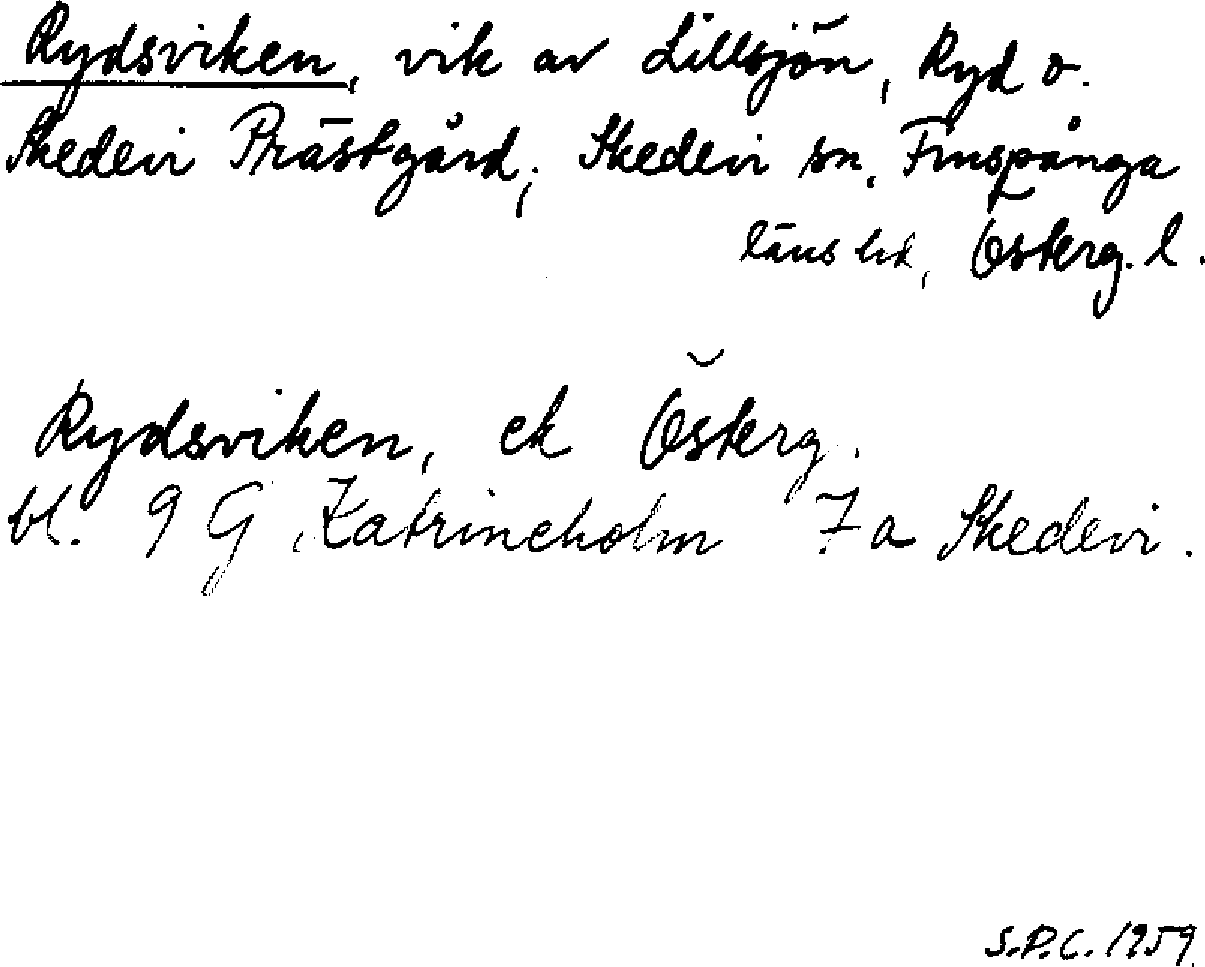 Rydsviken, vik av Lillsjön, Ryd o.
Skedevi Prästgård, Skedevi sn, Finspånga
läns hd, Österg. l.
Rydsviken, ek Österg.
bl. 9 G Katrineholm 7a Skedevi.
S.P.C. 1959.